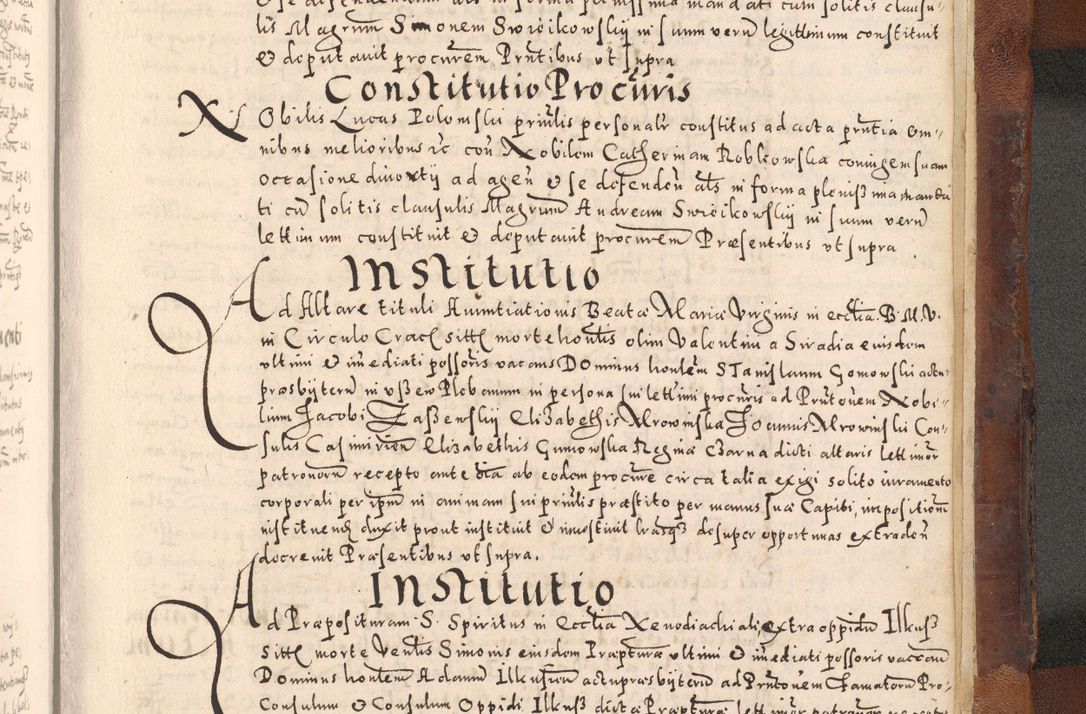 & se defendendum als in forma plenissima mandati cum solitis clausu-
lis Magrum Simonem Swięcikowskij in suum verum legittimum constituit
& deputauit procurem Prntibus vt supra
Constitutio Procuris
Nobilis Lucas Polomskii prnlis personalr constitus ad acta prntia om-
nibus melioribus &c con Nobilem Catherinam Roblkowska coniugem suam
occasione diuortij ad agen & se defenden als in forma plenissima manda
ti cu solitis clausulis Magrum Andream Swięcikowskij in suum veru
lettimum constituit & deputauit procurem Præsentibus vt supra
Institutio
Ad Altare tituli Anuntiationis Beatæ Mariæ Virginis in ecclia B. M. V.
in Circulo Crac sitt morte hontis olim Valentini a Siradia eiusdem
vltimi & imediati possoris vacans Dominus hontem Stanislaum Gomowskii actu
præsbijterum in Plebanum in persona sui lettimi procuris ad Prntonem Nobi-
lium Jacobi Zaßewskij Elizabethis Mrowinska Joannis Mrowinskii Con-
sulis Casimirien Elizabethis Gunowska Regina Czarna dicti altaris lettimor
patronorum recepto ante oia ab eodem procure circa talia exigi solito iuramento
corporali per ipm in animam sui prnlis præstito per manus suæ Capiti, impositionem
instituend duxit prout instituit & inuestiuit lrasq desuper opportunas extraden
decreuit Præsentibus vt supra.
Institutio
Ad Præposituram S. Spiritus in Ecclia Xenodochiali extra oppidum Ilkusz
sitt morte Ventis Simonis eiusdem Præptura vltimi & imediati possoris vacan
Dominus hontem Adamum Ilkusien actu præsbijterum ad Prntonem Famatorum Pro-
Consulum & Consulum Oppidi Ilkusz dictæ Præptura lettimor patronorum